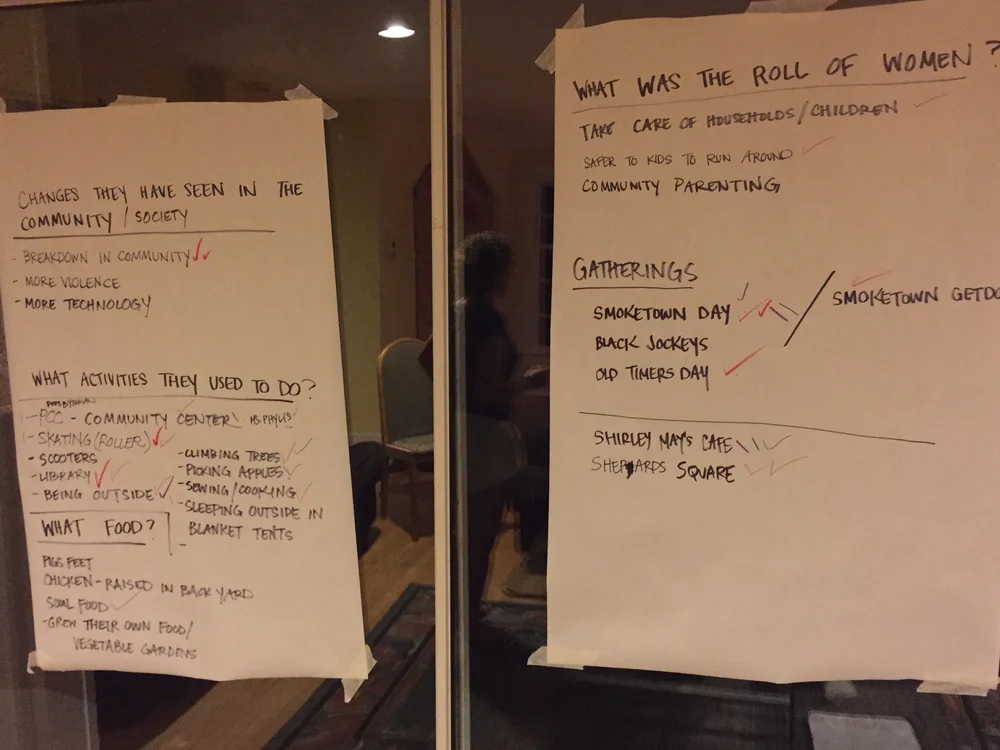 CHANGES THEY HAVE SEEN IN THE
COMMUNITY / SOCIETY
- BREAKDOWN IN COMMUNITY
- MORE VIOLENCE
- MORE TECHNOLOGY
WHAT ACTIVITIES THEY USED TO DO?
- PCC - COMMUNITY CENTER MS. PHYLIS
- SKATING (ROLLER)
- SCOOTERS
- LIBRARY
- BEING OUTSIDE
- CLIMBING TREES
- PICKING APPLES
- SEWING/COOKING
- SLEEPING OUTSIDE IN
BLANKET TENTS
-
WHAT FOOD?
PIGS FEET
CHICKEN - RAISED IN BACK YARD
SOUL FOOD
- GROW THEIR OWN FOOD/
VEGETABLE GARDENS
WHAT WAS THE ROLL OF WOMEN?
TAKE CARE OF HOUSEHOLDS/CHILDREN
SAFER TO KIDS TO RUN AROUND
COMMUNITY PARENTING
GATHERINGS
SMOKETOWN DAY / SMOKETOWN GETDO
BLACK JOCKEYS
OLD TIMERS DAY
SHIRLEY MAY'S CAFE
SHEPARDS SQUARE